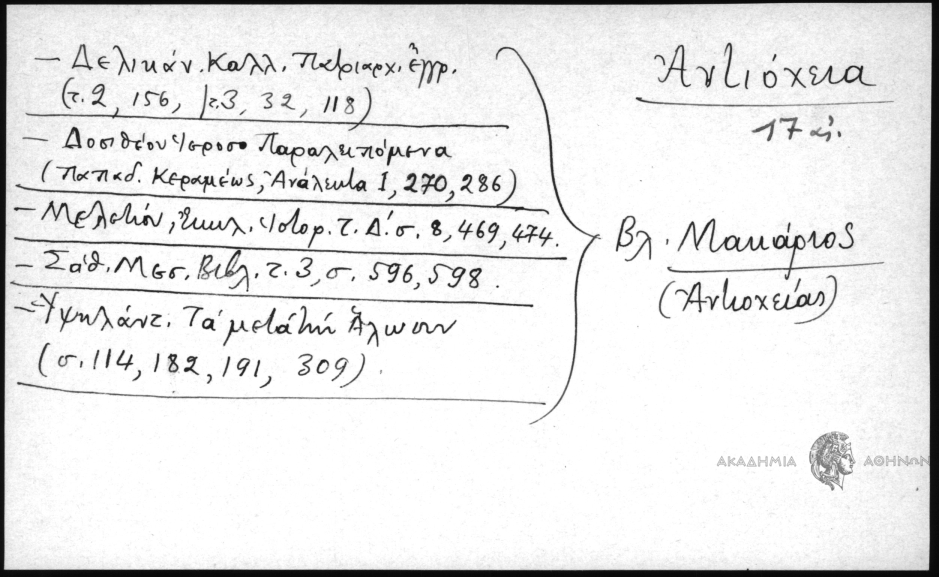 — Δελικάν. Καλλ. Πατριαρχ. ἔγγρ.
(τ. 2, 156, τ. 3, 32, 118)
— Δοσιθέου Ἱεροσο Παραλειπόμενα
(Παπαδ. Κεραμέως, Ἀνάλεκτα Ι, 270, 286)
— Μελετίου, Ἐκκλ. Ἱστορ. τ. Δ΄. σ. 8, 469, 474.
— Σάθ. Μεσ. Βιβλ. τ. 3, σ. 596, 598.
— Ὑψηλάντ. Τά μετά τήν Ἅλωσιν
(σ. 114, 182, 191, 309).
Ἀντιόχεια
17 αἰ.
Βλ. Μακάριος
(Ἀντιοχείας)
ΑΚΑΔΗΜΙΑ ΑΘΗΝΩΝ